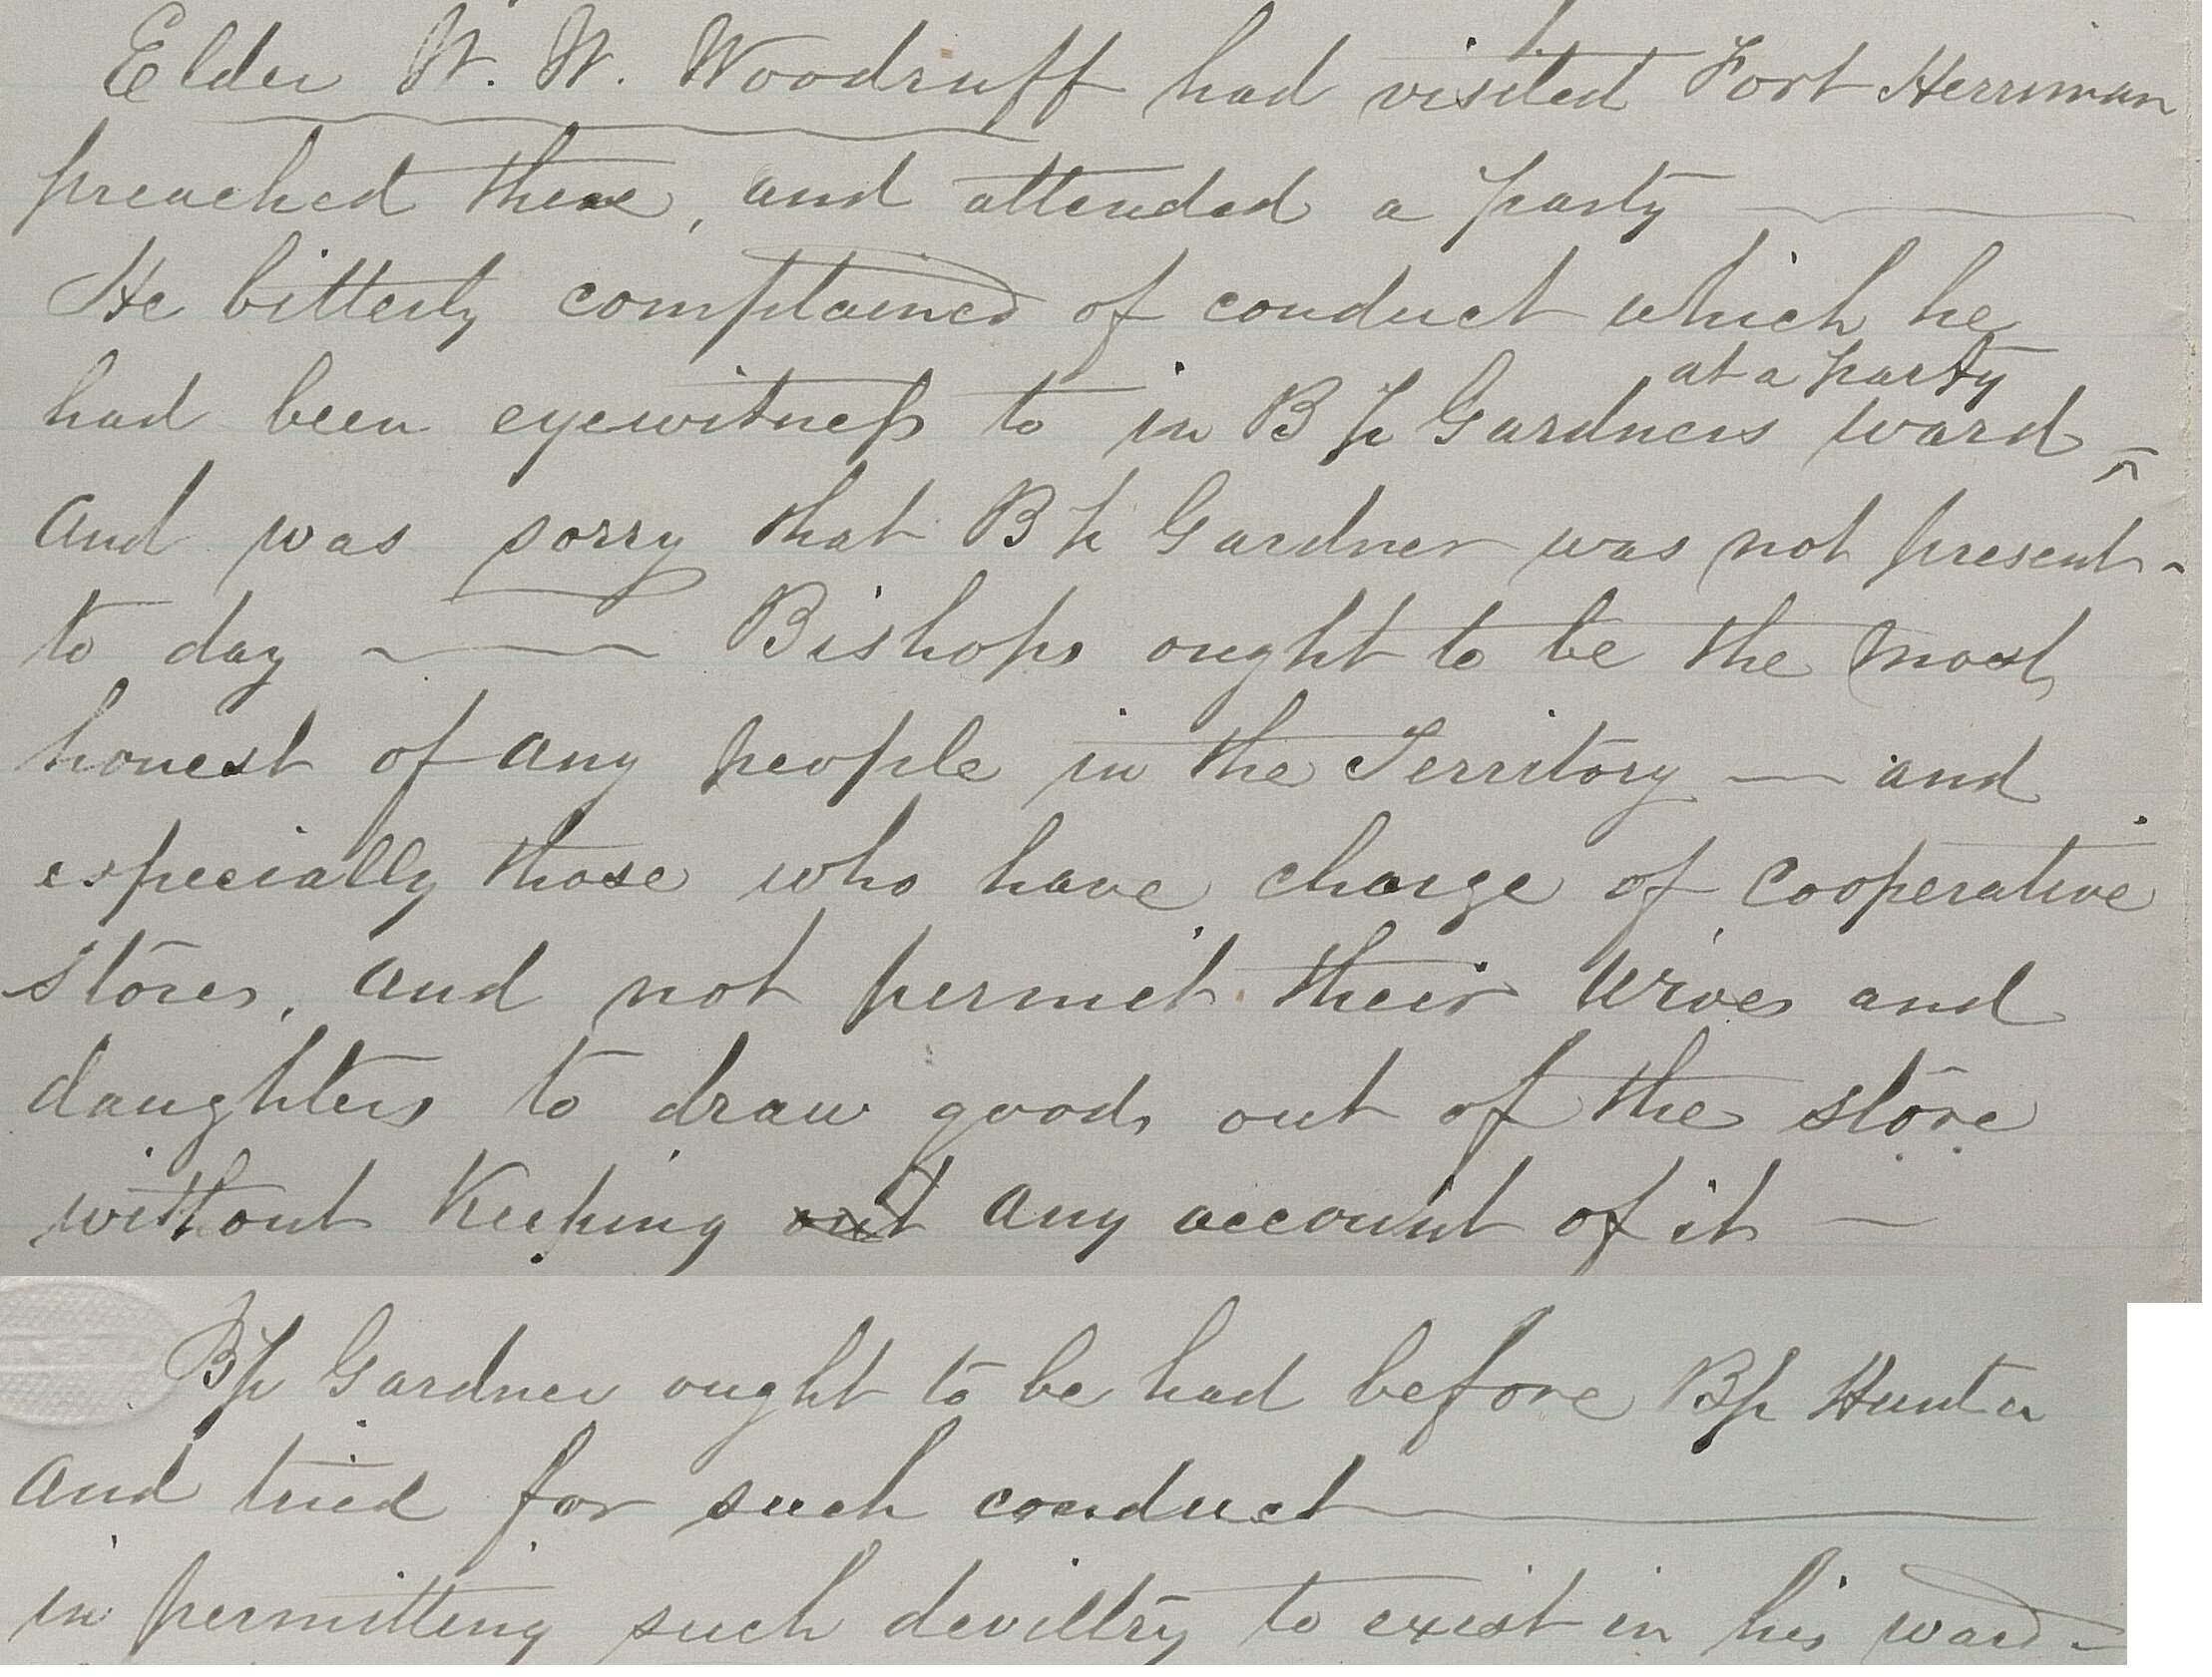 Elder W. W. Woodruff had visited Fort Herriman
preached there, and attended a party —
He bitterly complained of conduct which he
had been eyewitness to in Bp Gardners ward ^ at a party
and was sorry that Bp Gardner was not present -
to day — Bishops ought to be the most
honest of any people in the Territory — and
especially those who have charge of cooperative
stores, and not permit their wives and
daughters to draw goods out of the store
without Keeping out any account of it —
Bp Gardner ought to be had before Bp Hunter
and tried for such conduct —
in permitting such deviltry to exist in his ward -